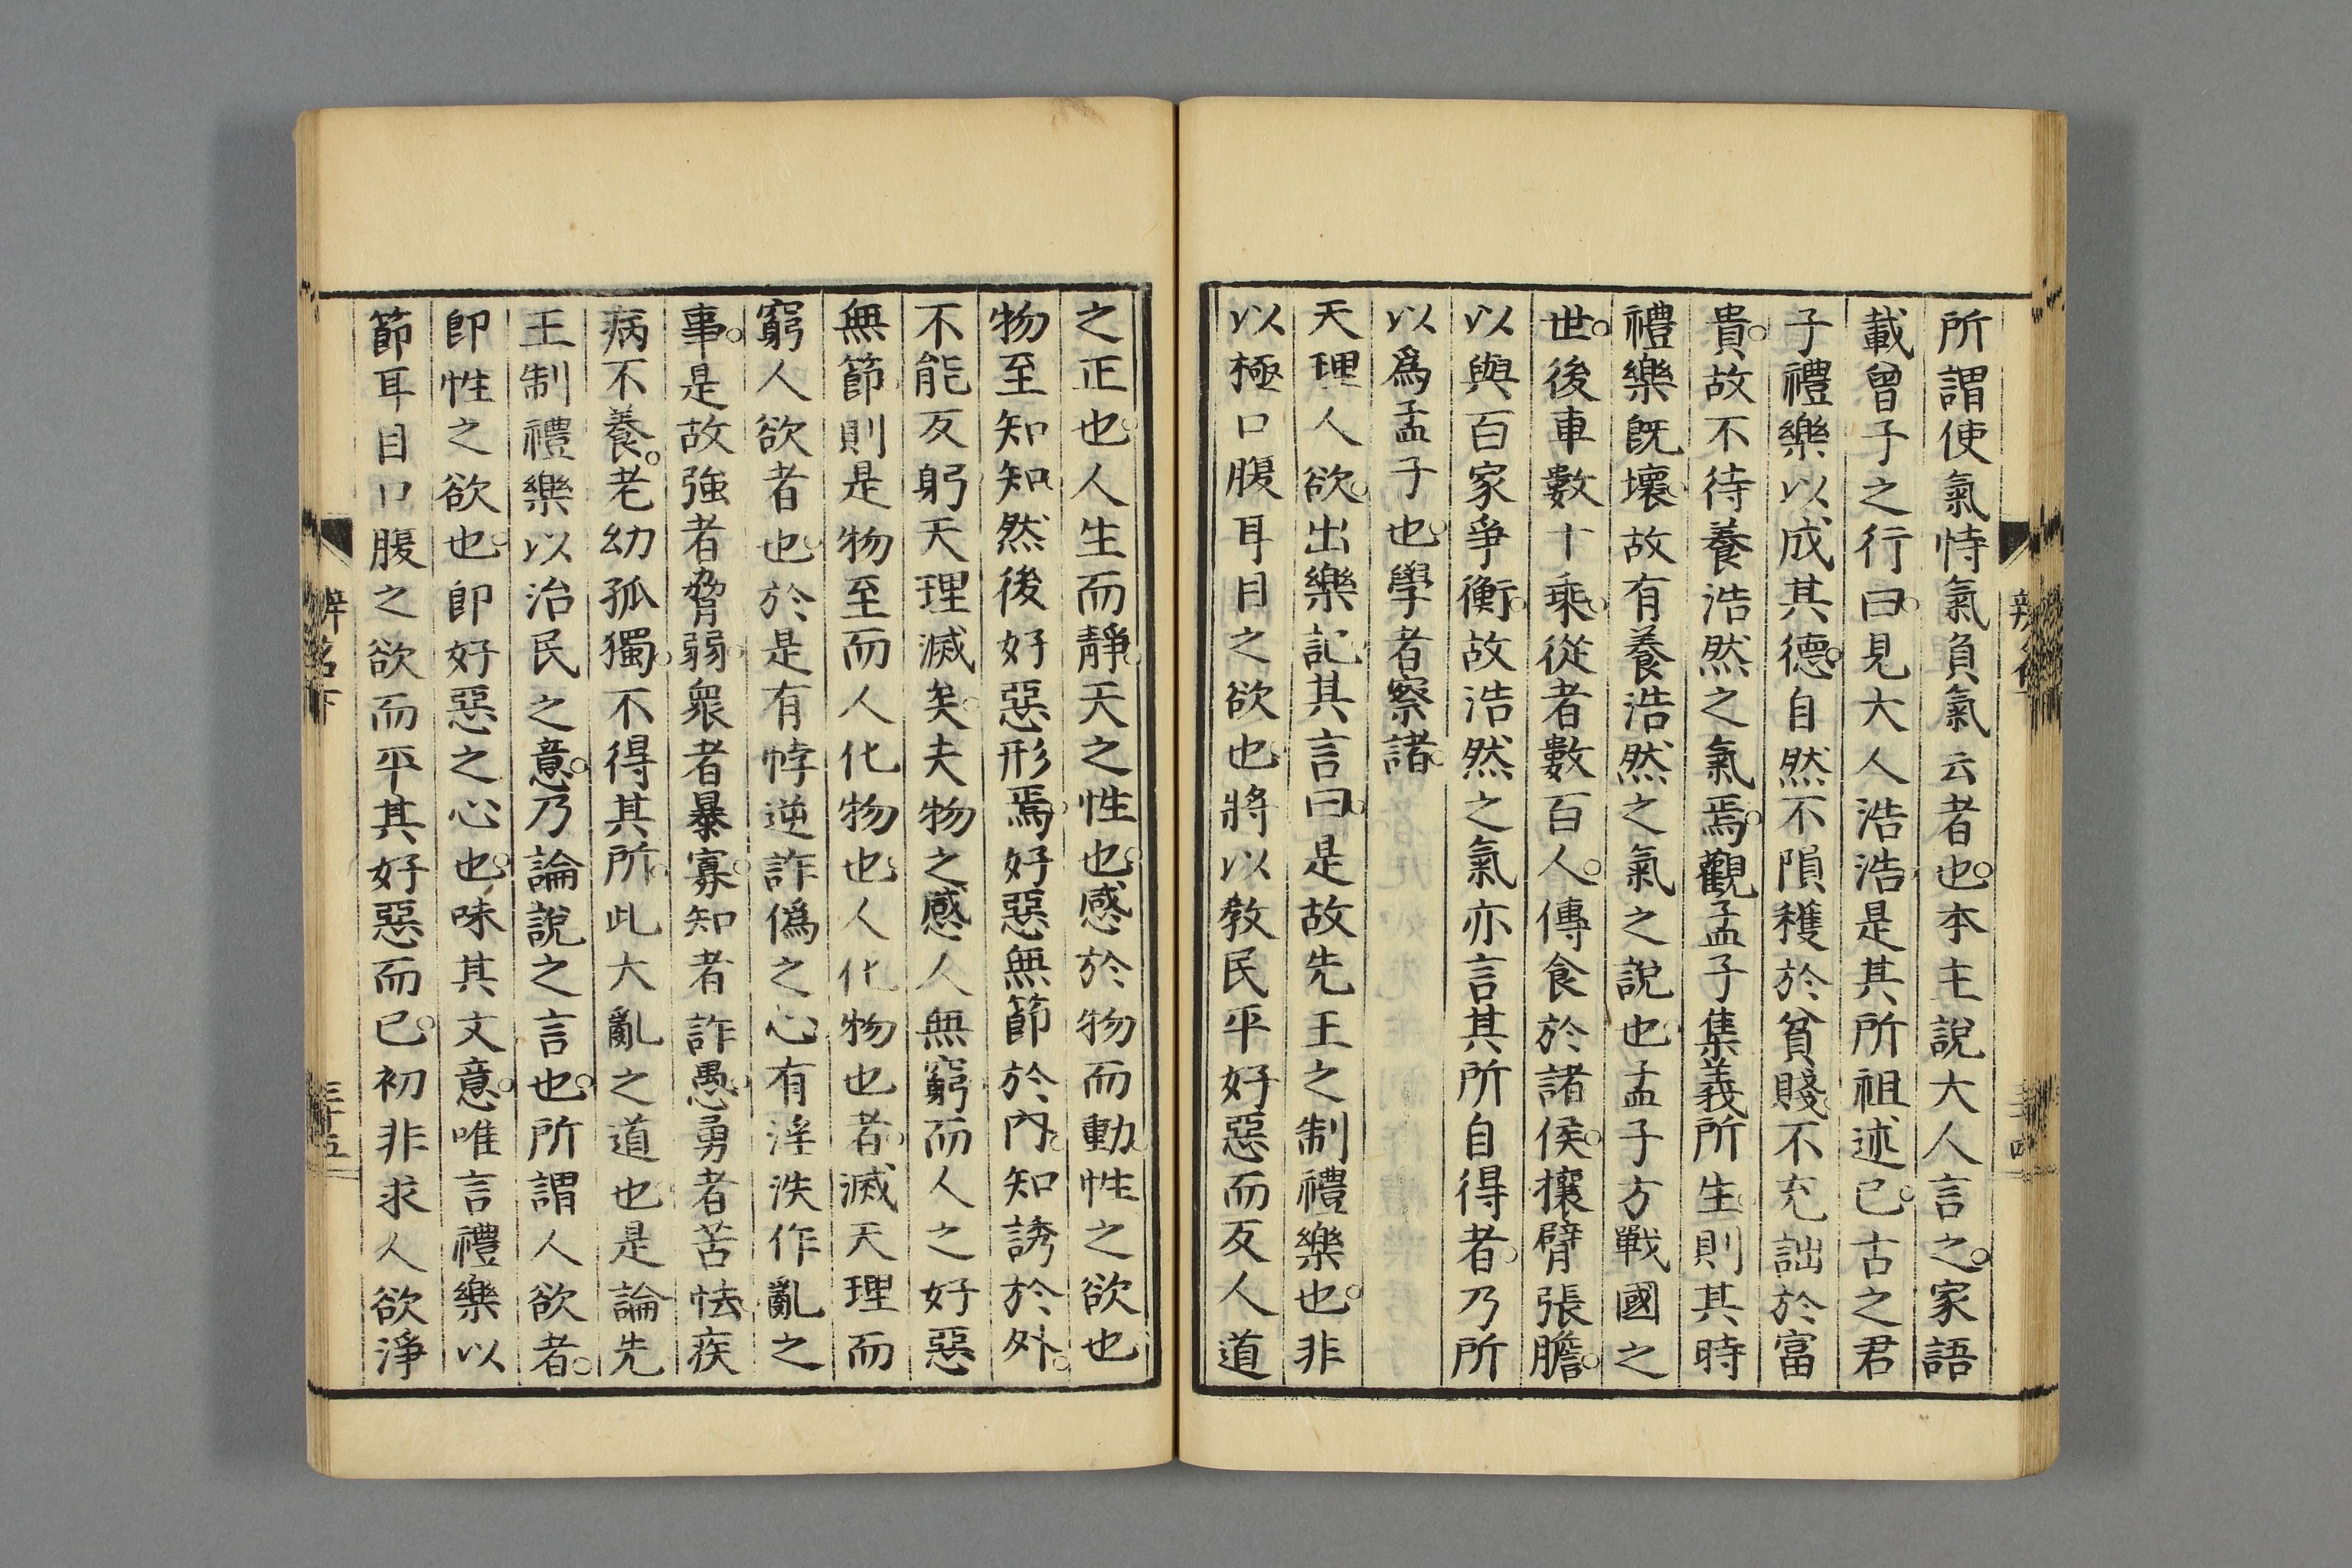 所謂使氣恃氣負氣云者也。本主說大人言之。家語
載曾子之行曰。見大人浩浩。是其所祖述已。古之君
子禮樂以成其德。自然不隕穫於貧賤。不充詘於富
貴。故不待養浩然之氣焉。觀孟子集義所生。則其時
禮樂既壞。故有養浩然之氣之說也。孟子方戰國之
世。後車數十乘。從者數百人。傳食於諸侯。攘臂張膽。
以與百家爭衡。故浩然之氣亦言其所自得者。乃所
以爲孟子也。學者察諸。
天理人欲。出樂記。其言曰。是故先王之制禮樂也。非
以極口腹耳目之欲也。將以教民平好惡而反人道
之正也。人生而靜。天之性也。感於物而動。性之欲也
物至知知。然後好惡形焉。好惡無節於內。知誘於外。
不能反躬。天理滅矣。夫物之感人無窮。而人之好惡
無節。則是物至而人化物也。人化物也者。滅天理而
窮人欲者也。於是有悖逆詐僞之心。有淫泆作亂之
事。是故強者脅弱。衆者暴寡。知者詐愚。勇者苦怯。疾
病不養。老幼孤獨。不得其所。此大亂之道也。是論先
王制禮樂以治民之意。乃論說之言也。所謂人欲者。
卽性之欲也。卽好惡之心也。味其文意。唯言禮樂以
節耳目口腹之欲而平其好惡而已。初非求人欲淨
辨名下
三十五